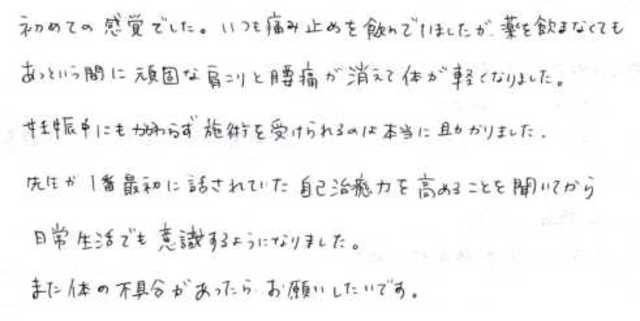 初めての感覚でした。いつも痛み止めを飲んでいましたが、薬を飲まなくても
あっという間に頑固な肩こりと腰痛が消えて体が軽くなりました。
妊娠中にもかかわらず施術を受けられるのは本当に助かりました。
先生が1番最初に話されていた自己治癒力を高めることを聞いてから
日常生活でも意識するようになりました。
また体の不具合があったらお願いしたいです。